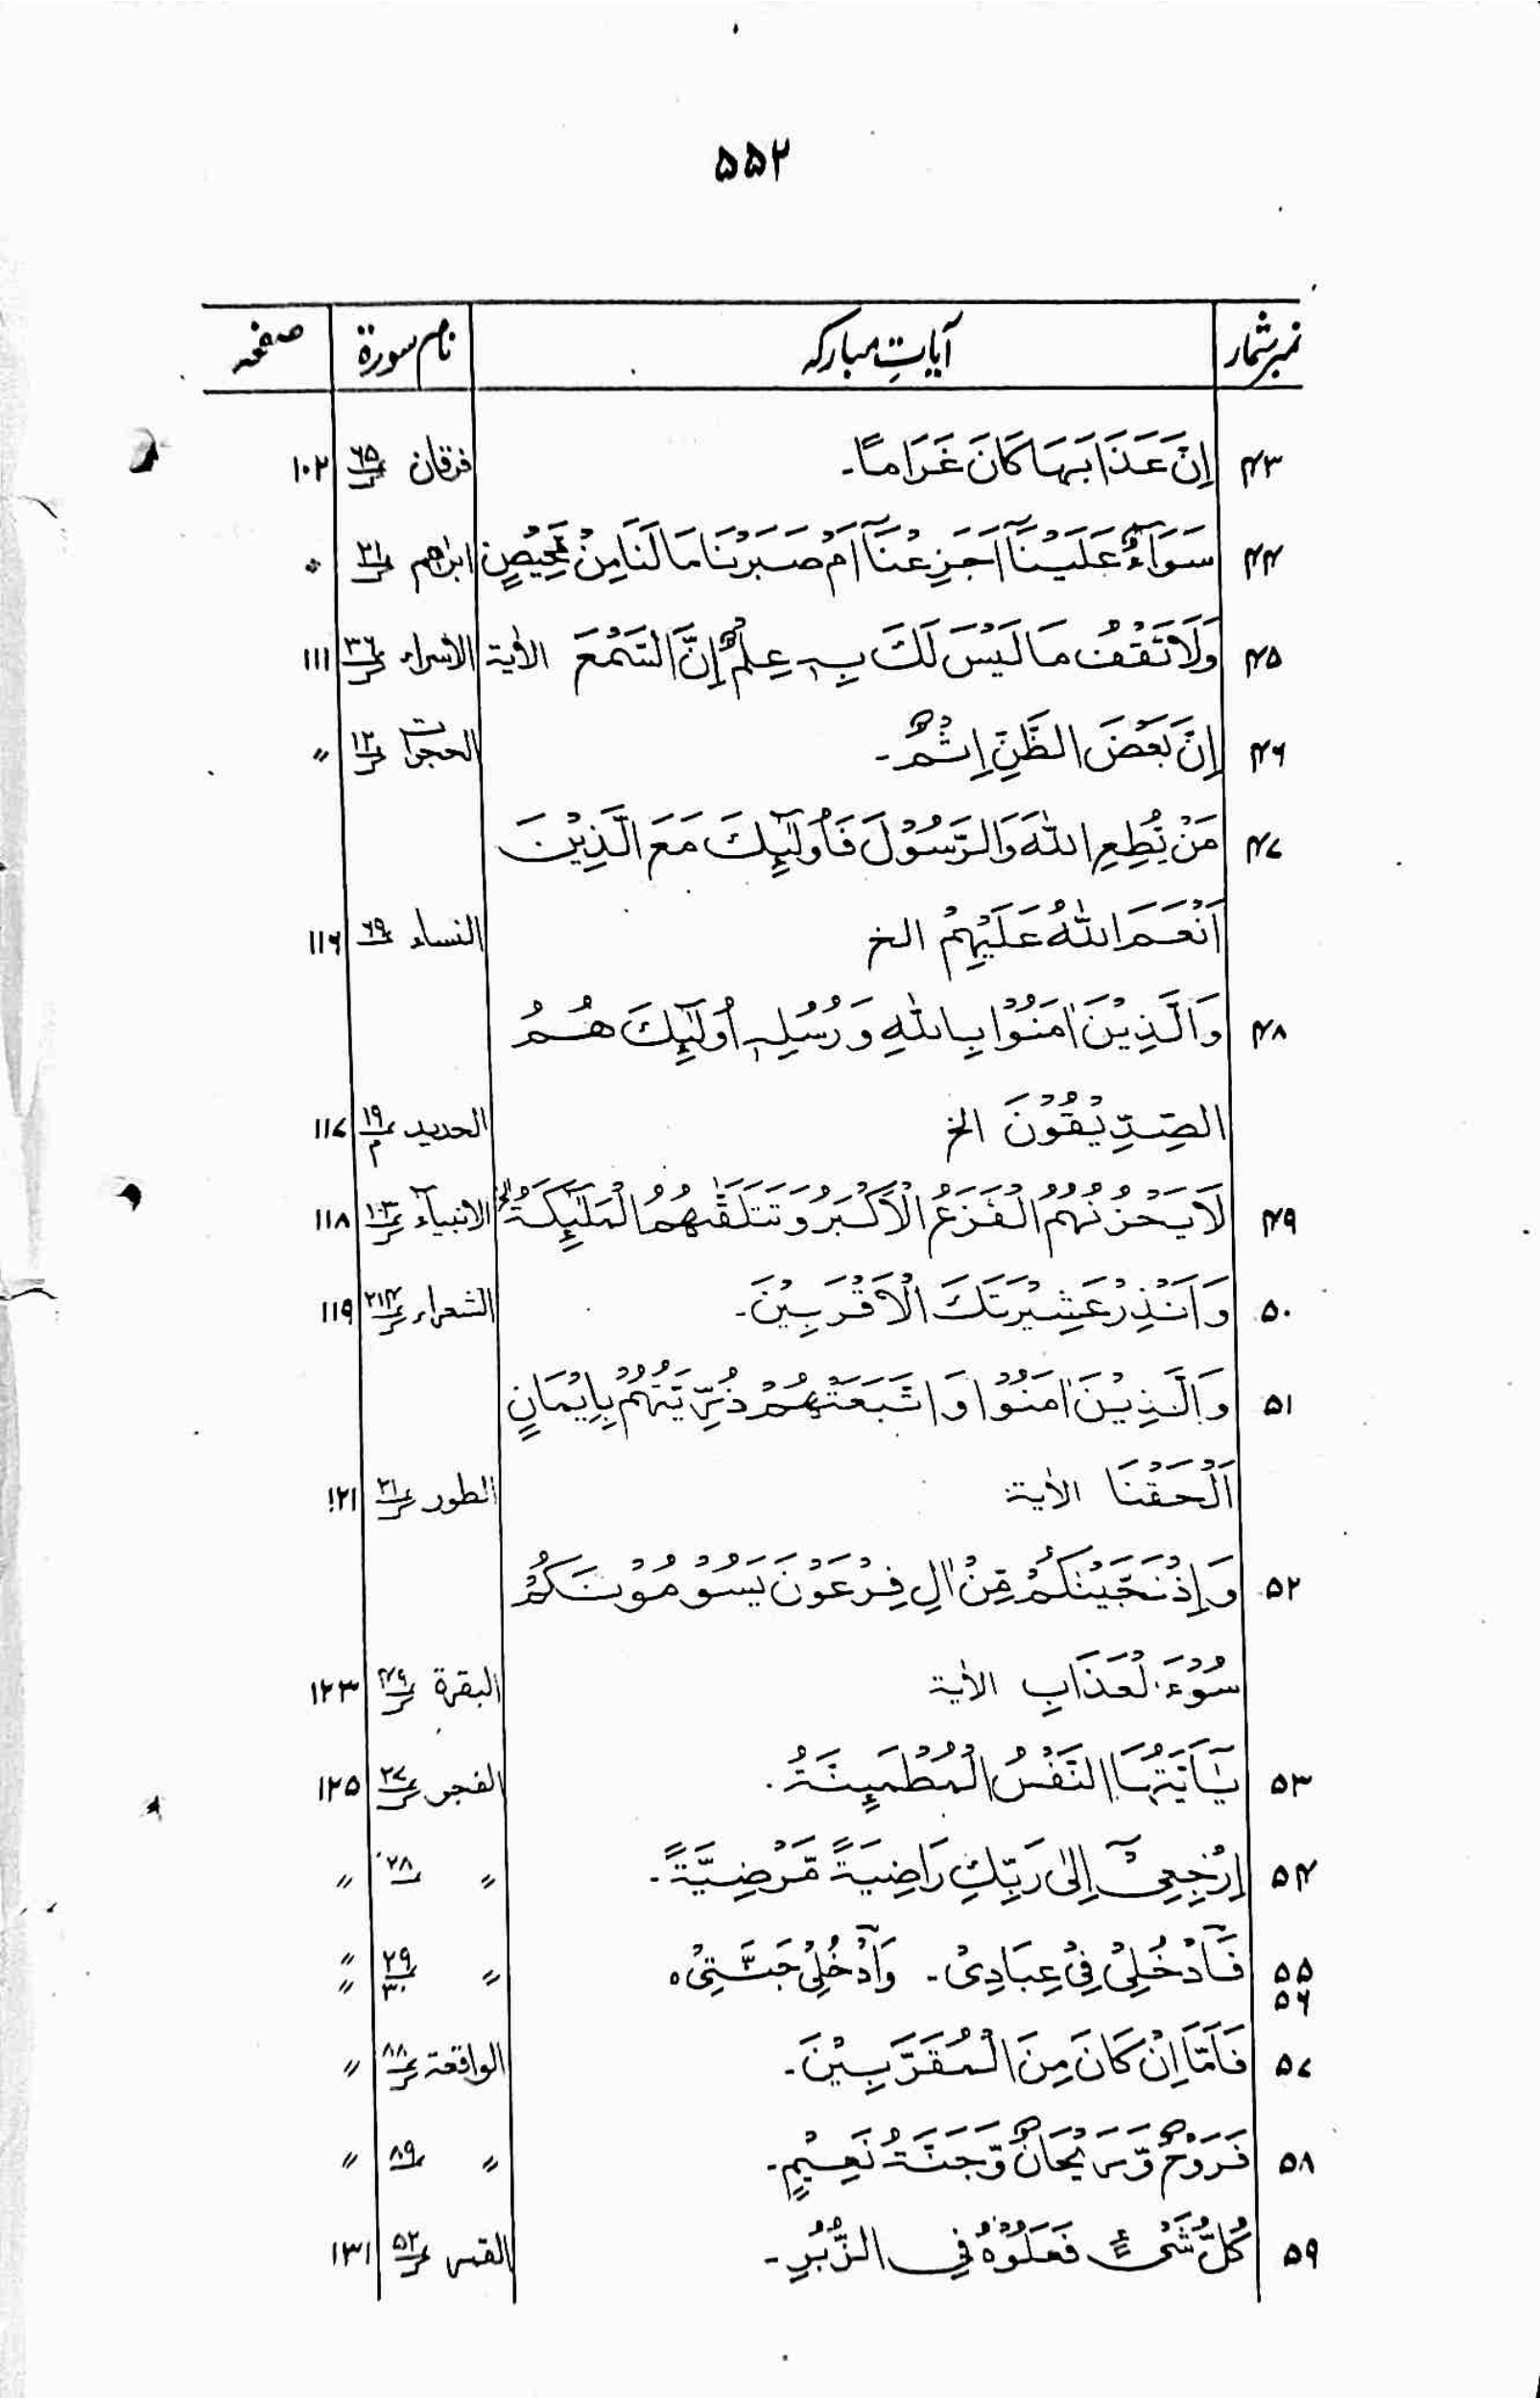 ۵۵۲
نمبر شمار آیاتِ مبارکہ نام سورۃ صفحہ
۴۳ اِنَّ عَذَابَهَا كَانَ غَرَامًا۔ فرقان ۶۵ ۱۰۲
۴۴ سَوَآءٌ عَلَيْنَآ اَجَزِعْنَآ اَمْ صَبَرْنَا مَا لَنَا مِنْ مَّحِيْصٍ ابراهم ۲۱ 〃
۴۵ وَلَا تَقْفُ مَا لَيْسَ لَكَ بِهٖ عِلْمٌ اِنَّ السَّمْعَ الاٰية الاسراء ۳۶ ۱۱۱
۴۶ اِنَّ بَعْضَ الظَّنِّ اِثْمٌ۔ الحجرات ۱۲ 〃
۴۷ مَنْ يُّطِعِ اللهَ وَالرَّسُوْلَ فَاُولٰٓئِكَ مَعَ الَّذِيْنَ
اَنْعَمَ اللهُ عَلَيْهِمْ الخ النساء ۶۹ ۱۱۶
۴۸ وَالَّذِيْنَ اٰمَنُوْا بِاللهِ وَ رُسُلِهٖ اُولٰٓئِكَ هُمُ
الصِّدِّيْقُوْنَ الخ الحديد ۱۹ م ۱۱۷
۴۹ لَا يَحْزُنُهُمُ الْفَزَعُ الْاَكْبَرُ وَ تَتَلَقّٰهُمُ الْمَلٰٓئِكَةُ الخ الانبيآء ۱۰۳ ۱۱۸
۵۰ وَ اَنْذِرْ عَشِيْرَتَكَ الْاَقْرَبِيْنَ۔ الشعراء ۲۱۴ ۱۱۹
۵۱ وَالَّذِيْنَ اٰمَنُوْا وَ اتَّبَعَتْهُمْ ذُرِّيَّتُهُمْ بِاِيْمَانٍ
اَلْحَقْنَا الاٰية الطور ۲۱ ۱۲۱
۵۲ وَ اِذْ نَجَّيْنٰكُمْ مِّنْ اٰلِ فِرْعَوْنَ يَسُوْمُوْنَكُمْ
سُوْٓءَ لْعَذَابِ الاٰية البقرة ۴۹ ۱۲۳
۵۳ يٰٓاَيَّتُهَا النَّفْسُ الْمُطْمَئِنَّةُ۔ الفجر ۲۷ ۱۲۵
۵۴ اِرْجِعِيْٓ اِلٰى رَبِّكِ رَاضِيَةً مَّرْضِيَّةً۔ 〃 ۲۸ 〃
۵۵ فَادْخُلِيْ فِيْ عِبَادِيْ۔ وَادْخُلِيْ جَنَّتِيْ ہ 〃 ۲۹ 〃
۵۶ ۳۰ 〃
۵۷ فَاَمَّا اِنْ كَانَ مِنَ الْمُقَرَّبِيْنَ۔ الواقعة ۸۸ 〃
۵۸ فَرَوْحٌ وَّ رَيْحَانٌ وَّجَنَّةُ نَعِيْمٍ۔ 〃 ۸۹ 〃
۵۹ كُلُّ شَيْءٍ فَعَلُوْهُ فِي الزُّبُرِ۔ القمر ۵۲ ۱۳۱